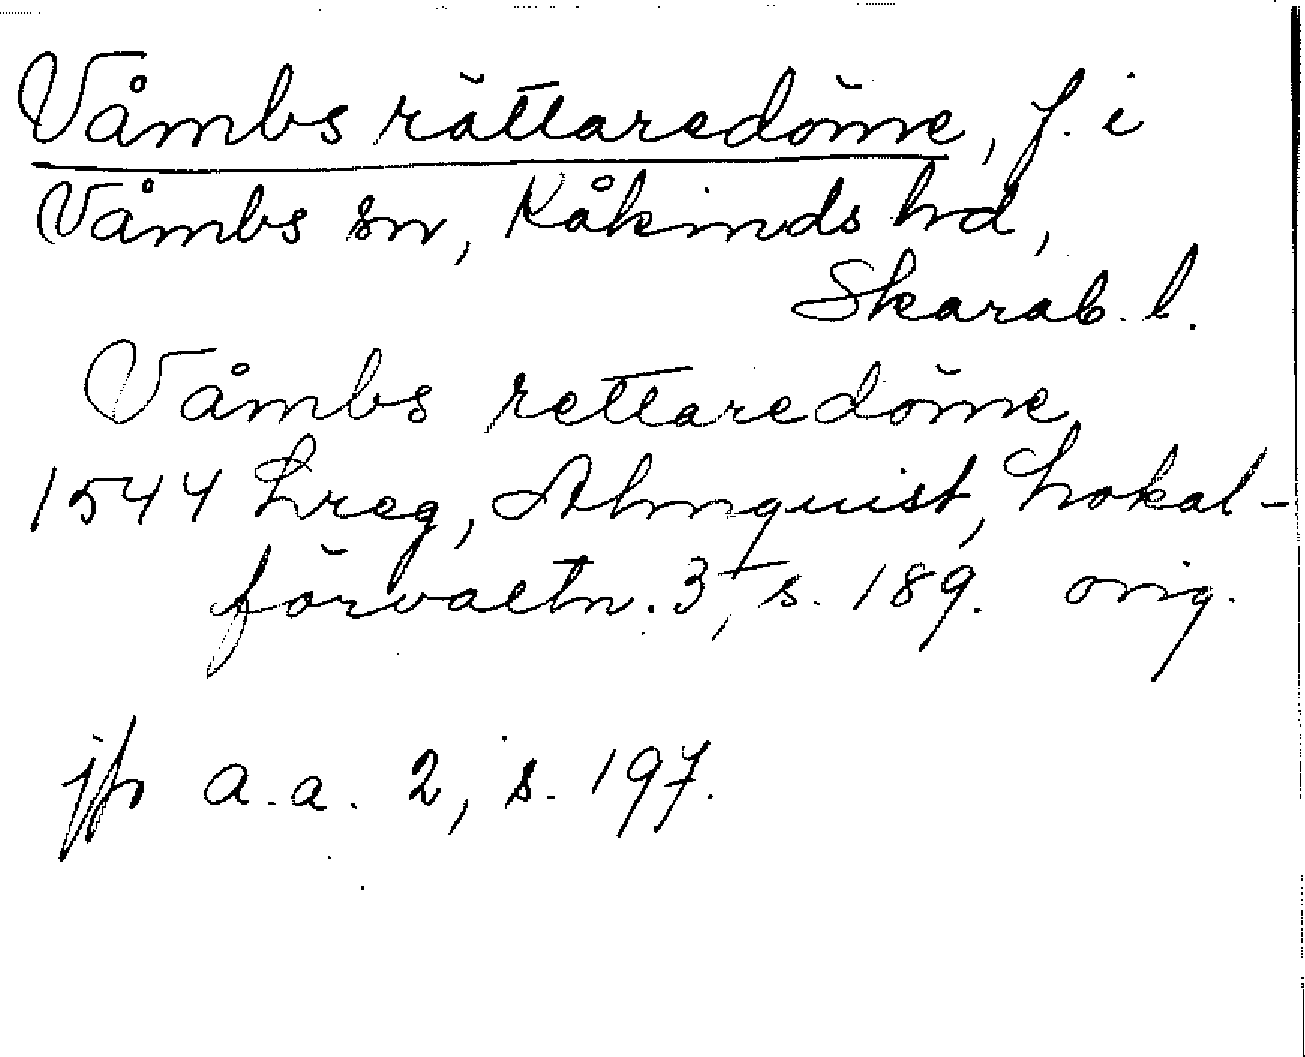 Våmbs rättaredöme, f. i
Våmbs sn, Kåkinds hd,
Skarab. l.
Våmbs rettaredöme
1544 Lreg, Almquist, Lokal-
förvaltn. 3, s. 189. orig.
jfr a.a. 2, s. 197.